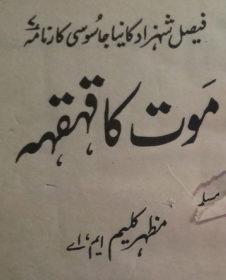 فیصل شہزاد کا نیا جاسوسی کارنامہ ۷
موت کا قہقہہ
مظہر کلیم ایم، اے